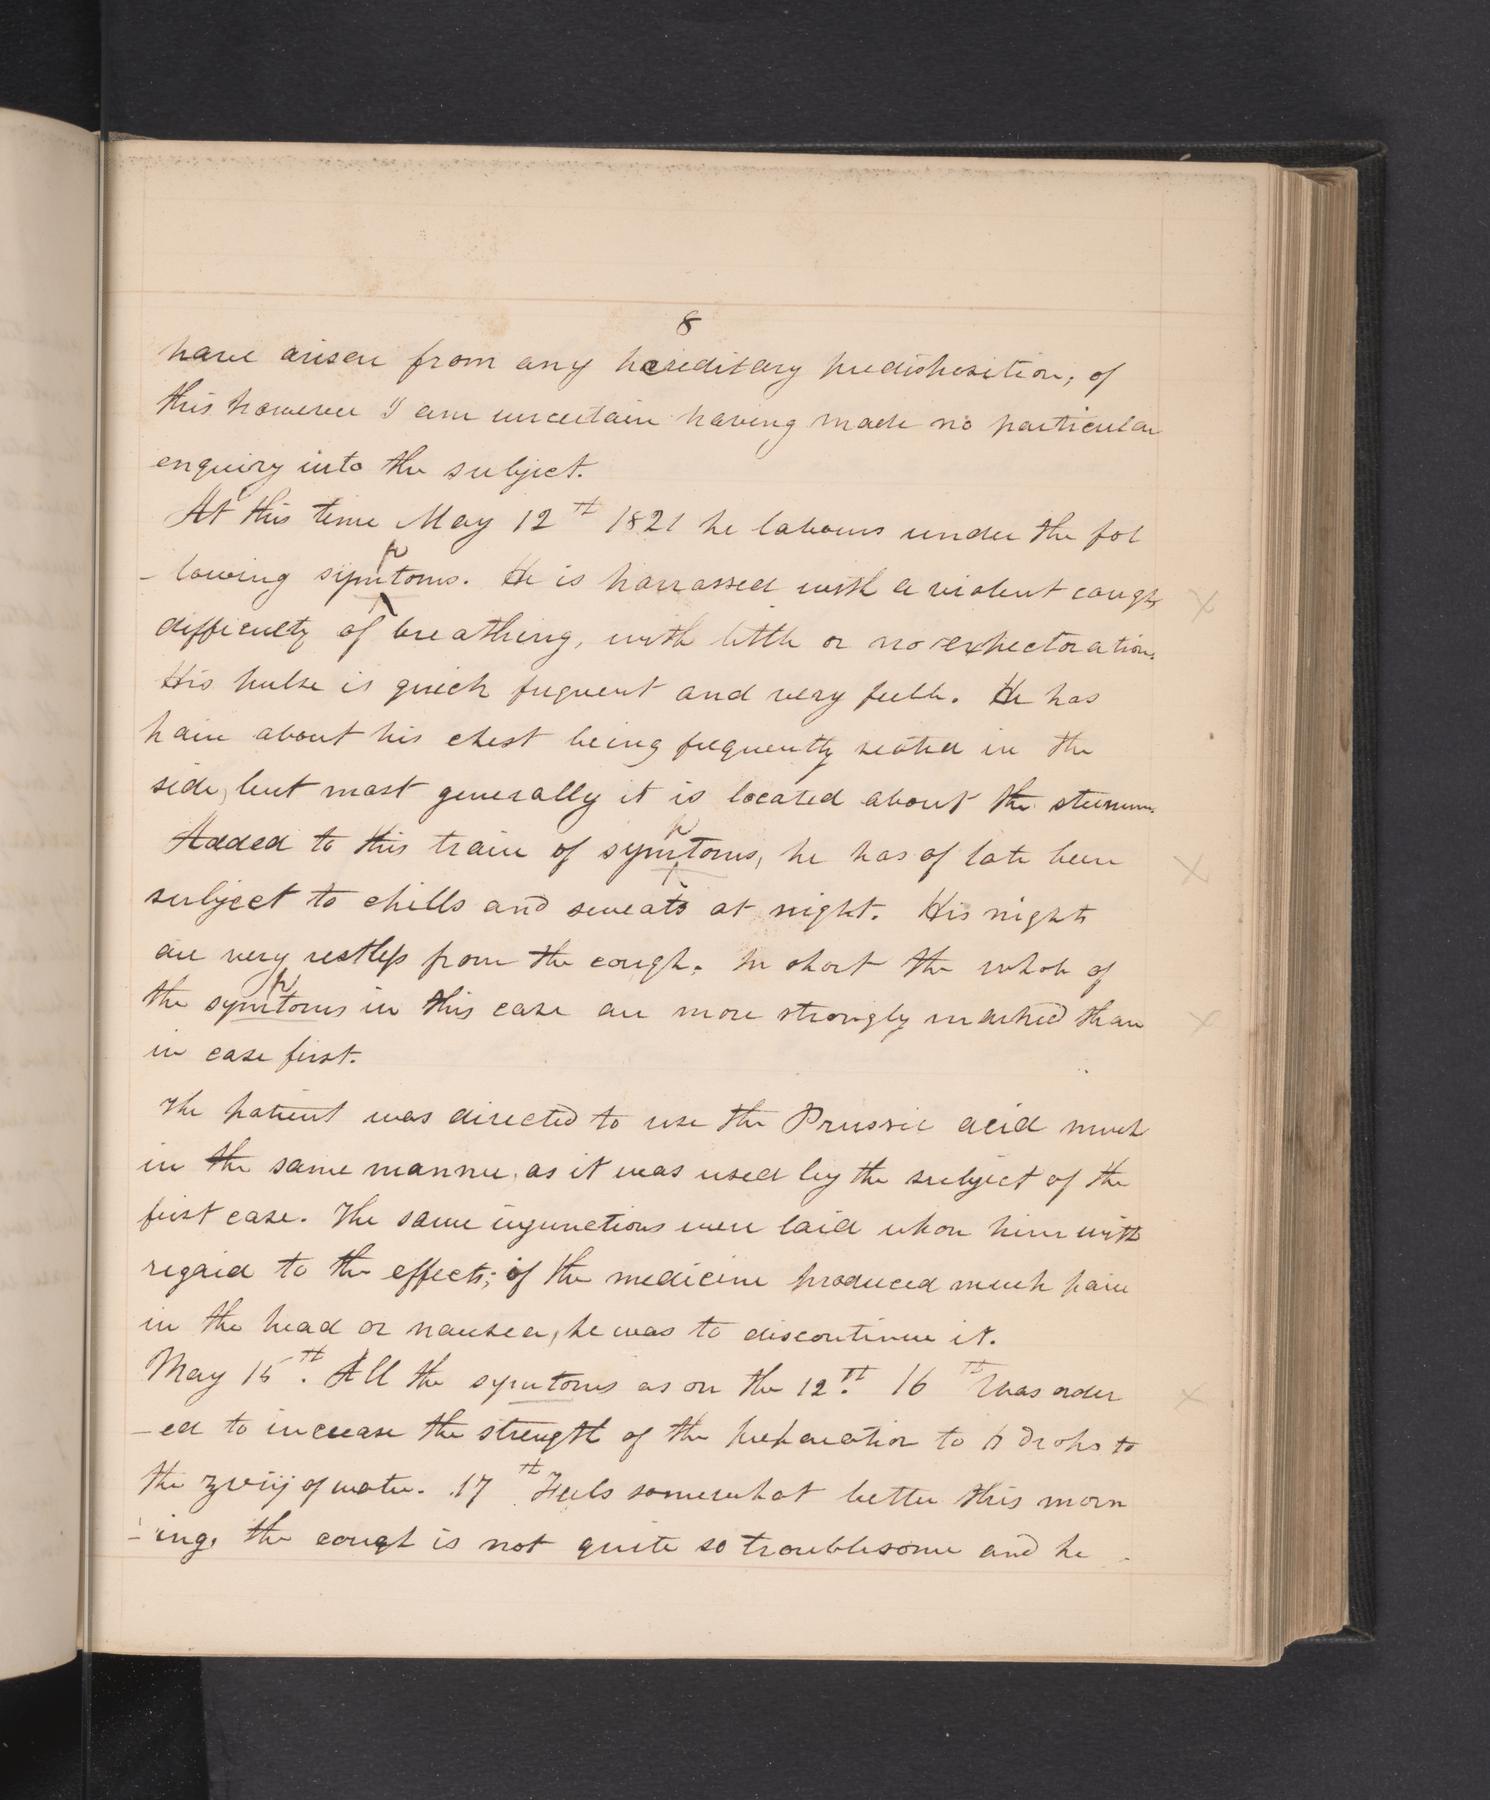 8
have arisen from any hereditary predisposition; of
this however I am uncertain having made no particular
enquiry into the subject.
At this time May 12th 1821 he labours under the fol
- lowing symptoms. He is harrassed with a violent cough
difficulty of breathing, with little or no expectoration.
His pulse is quick frequent and very feeble. He has
pain about his chest being frequently seated in the
side, but most generally it is located about the sternum.
Added to this train of symptoms, he has of late been
subject to chills and sweats at night. His nights
are very restless from the cough. In short the whole of
the symptoms in this case are more strongly marked than
in case first.
The patient was directed to use the Prussic acid much
in the same manner as it was used by the subject of the
first case. The same injunctions were laid upon him with
regard to the effects; if the medicine produced much pain
in the head or nausea, he was to discontinue it.
May 15th. All the symtoms as on the 12th. 16th Was order
-ed to increase the strength of the preparation to drops to
the ʒviij of water. 17th Feels somewhat better this morn
-ing, the cough is not quite so troublesome and he